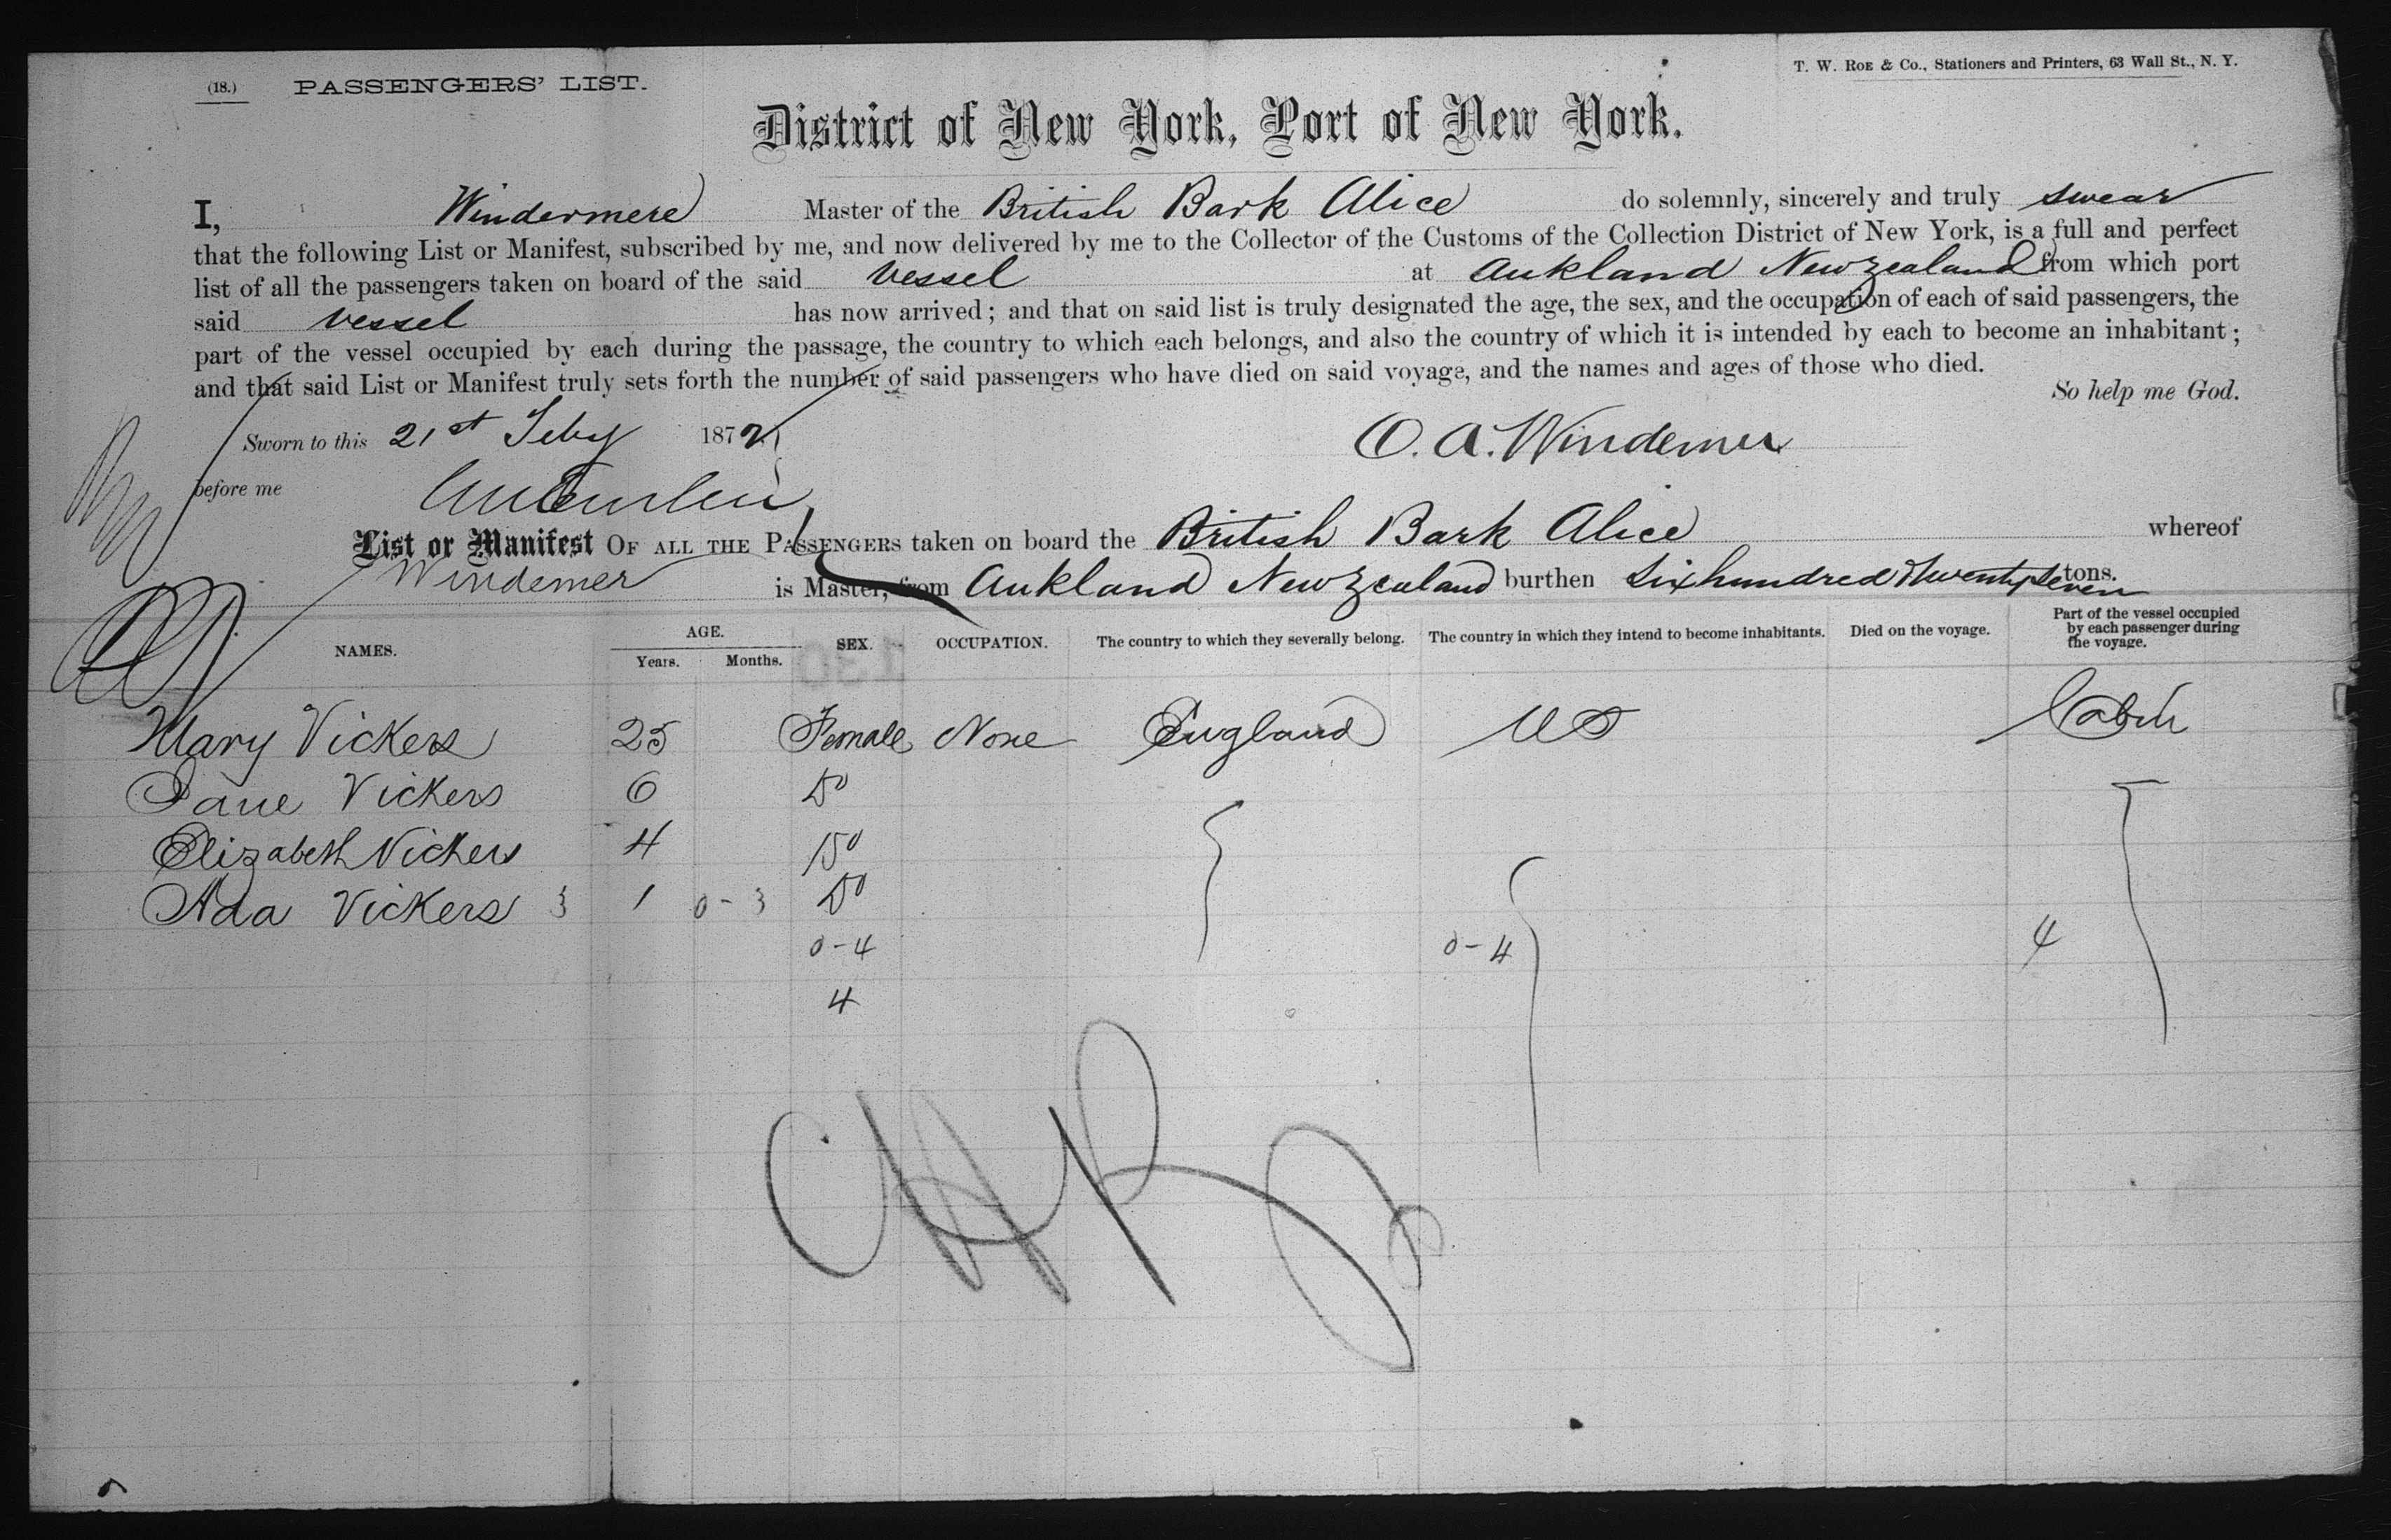 (18.) PASSENGERS' LIST. T. W. ROE & Co., Stationers and Printers, 63 Wall St., N. Y.
District of New York, Port of New York.
I, Windermere Master of the British Bark Alice do solemnly, sincerely and truly swear
that the following List or Manifest, subscribed by me, and now delivered by me to the Collector of the Customs of the Collection District of New York, is a full and perfect
list of all the passengers taken on board of the said vessel at Aukland New Zealand from which port
said vessel has now arrived; and that on said list is truly designated the age, the sex, and the occupation of each of said passengers, the
part of the vessel occupied by each during the passage, the country to which each belongs, and also the country of which it is intended by each to become an inhabitant;
and that said List or Manifest truly sets forth the number of said passengers who have died on said voyage, and the names and ages of those who died.
So help me God.
Sworn to this 21st Feby 1872 O. A. Windemer
before me
List or Manifest OF ALL THE PASSENGERS taken on board the British Bark Alice whereof
Windemer is Master, from Aukland New Zealand burthen Six hundred & twenty seven tons.
NAMES. AGE. Years. Months. SEX. OCCUPATION. The country to which they severally belong. The country in which they intend to become inhabitants. Died on the voyage. Part of the vessel occupied by each passenger during the voyage.
Mary Vickers 25 Female None England US Cabin
Jane Vickers 6 Do
Elizabeth Vickers 4 Do
Ada Vickers 3 1 0-3 Do
0-4 0-4 4
4